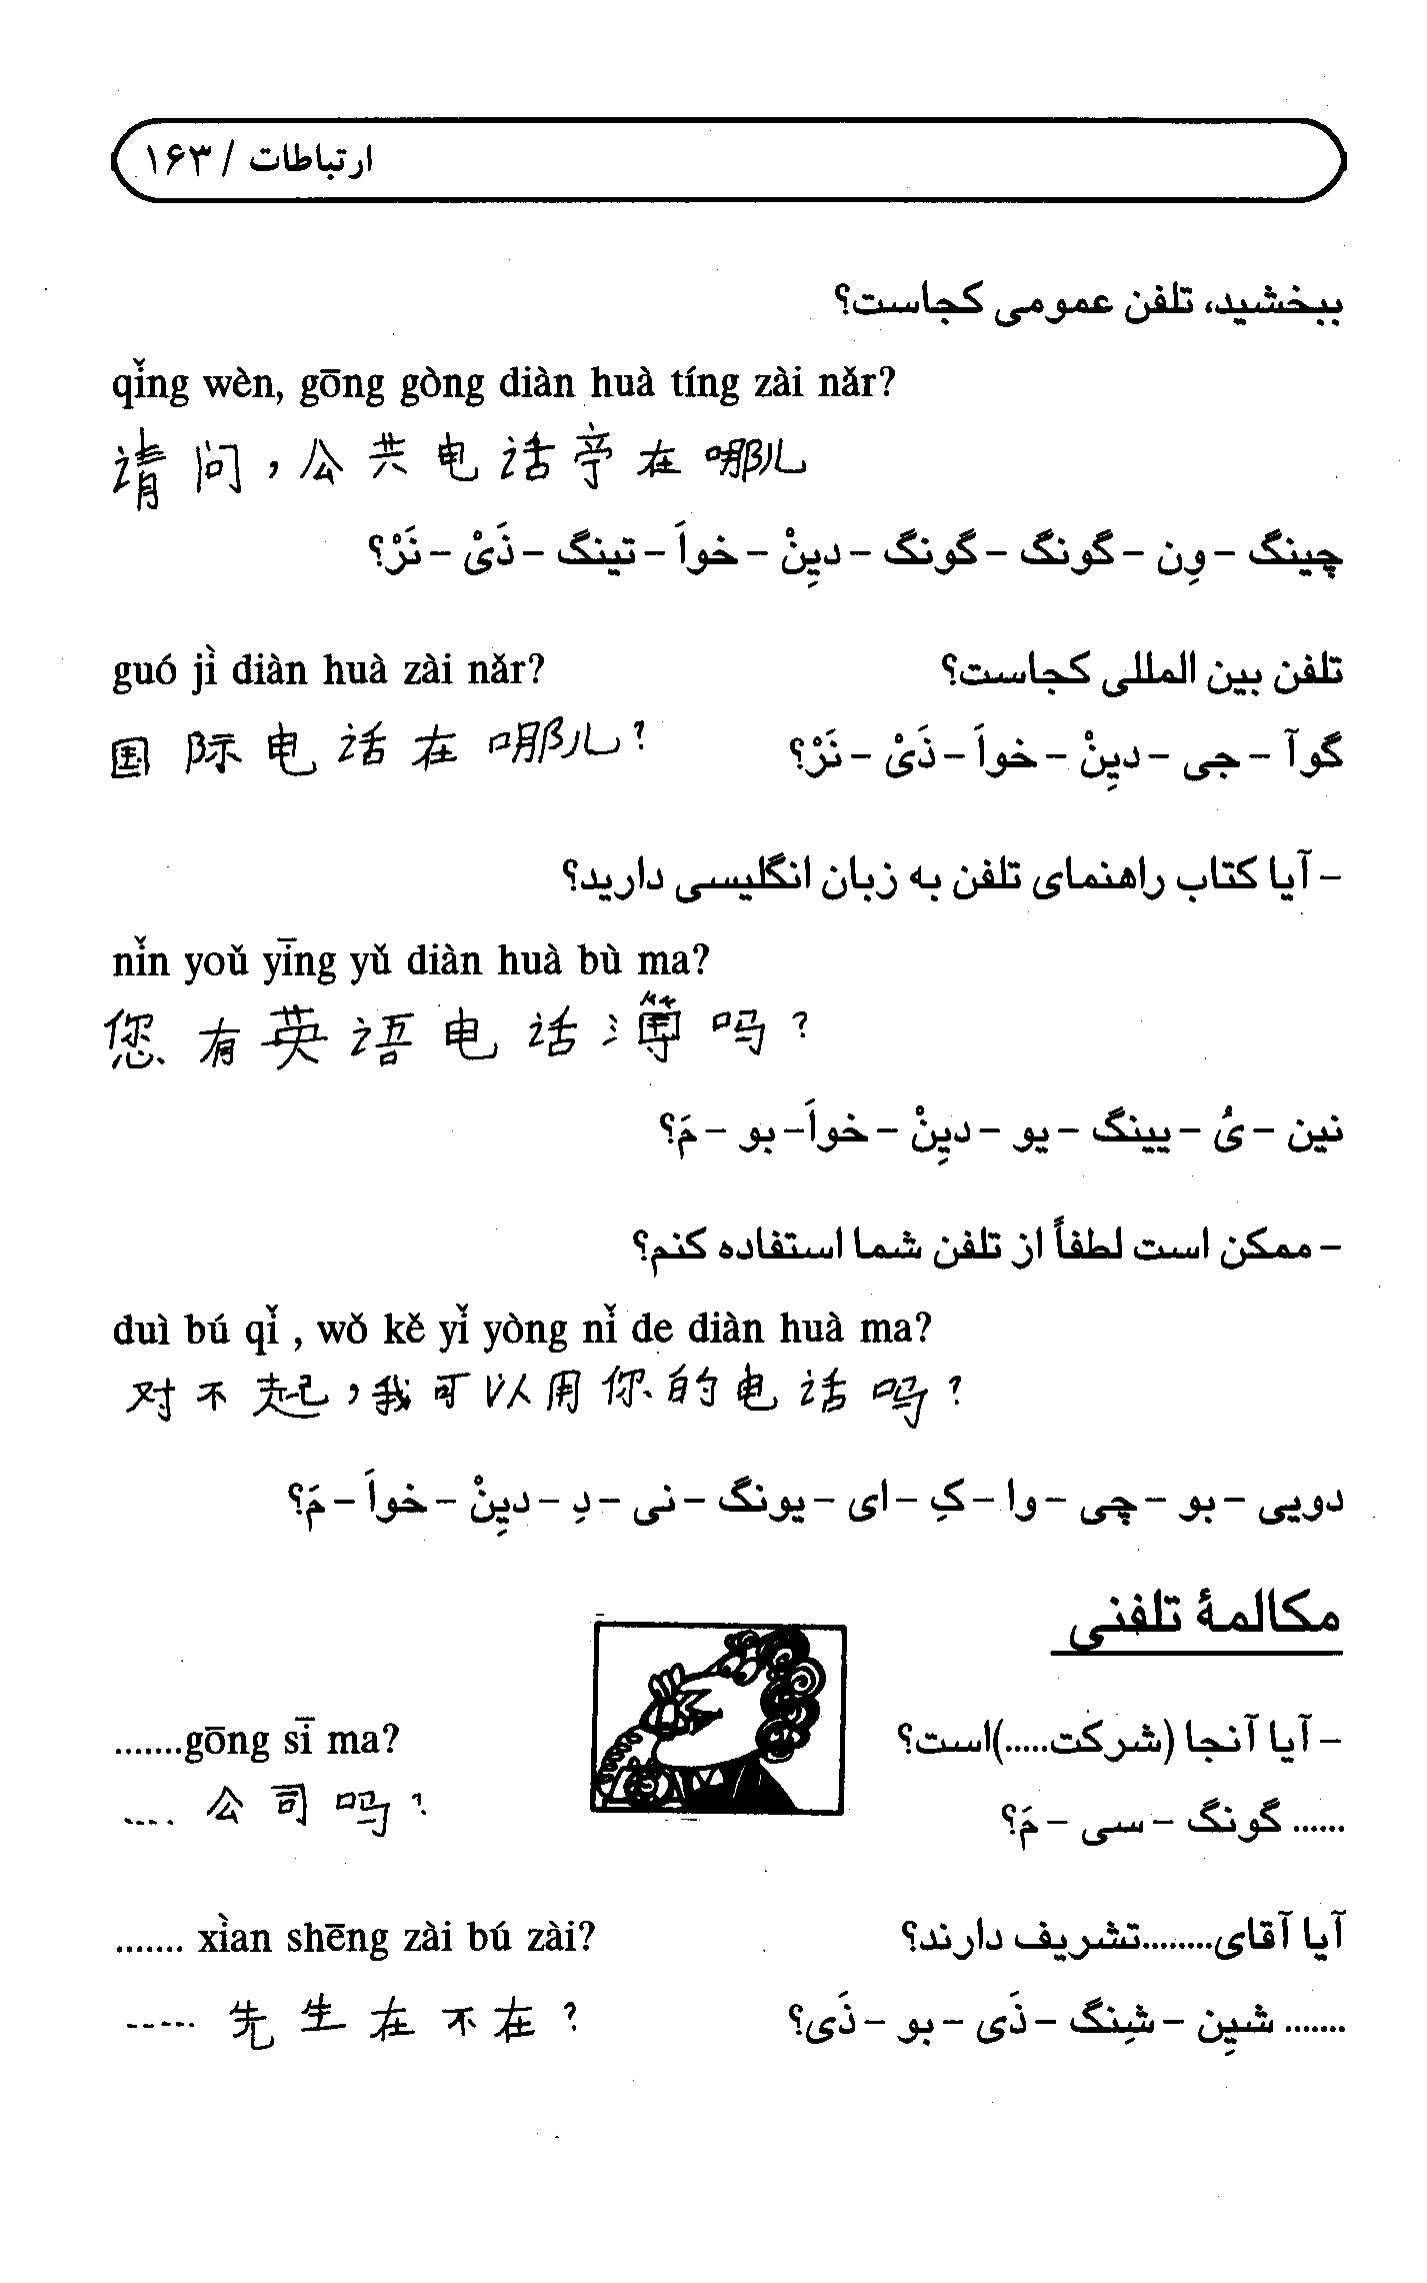 ارتباطات / ۱۶۳
ببخشید، تلفن عمومی کجاست؟
qǐng wèn, gōng gòng diàn huà tíng zài nǎr?
请问，公共电话亭在哪儿
چینگ – وِن – گونگ – گونگ – دیِنْ – خواَ – تینگ – ذَیْ – نَرْ؟
تلفن بین المللی کجاست؟
guó jì diàn huà zài nǎr?
国际电话在哪儿?
گوآ – جی – دیِنْ – خواَ – ذَیْ – نَرْ؟
– آیا کتاب راهنمای تلفن به زبان انگلیسی دارید؟
nǐn yoǔ yīng yǔ diàn huà bù ma?
您有英语电话簿吗?
نین – یُ – یینگ – یو – دیِنْ – خواَ– بو – مَ؟
– ممکن است لطفاً از تلفن شما استفاده کنم؟
duì bú qǐ , wǒ kě yǐ yòng nǐ de diàn huà ma?
对不起，我可以用你的电话吗?
دویی – بو – چی – وا – کِ – ای – یونگ – نی – دِ – دیِنْ – خواَ – مَ؟
مکالمهٔ تلفنی
– آیا آنجا (شرکت.....)است؟
.......gōng sī ma?
.... 公司吗?
...... گونگ – سی – مَ؟
آیا آقای........تشریف دارند؟
....... xìan shēng zài bú zài?
..... 先生在不在?
....... شیِن – شِنگ – ذَی – بو – ذَی؟